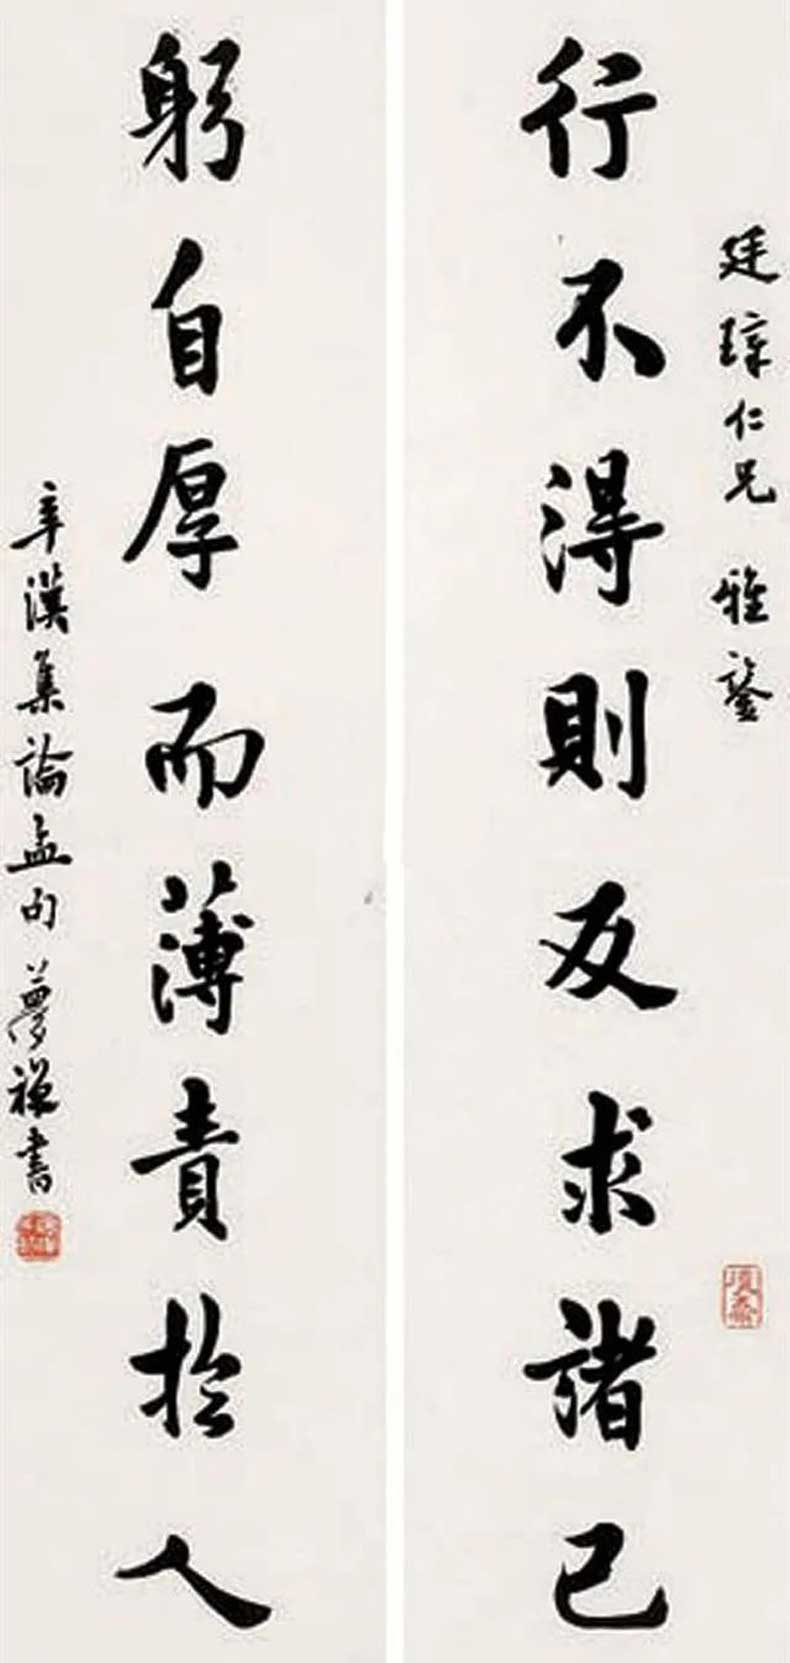 廷璋仁兄 雅鉴
行不得則反求諸己
躬自厚而薄責於人
辛漢集論孟句 夢禪書